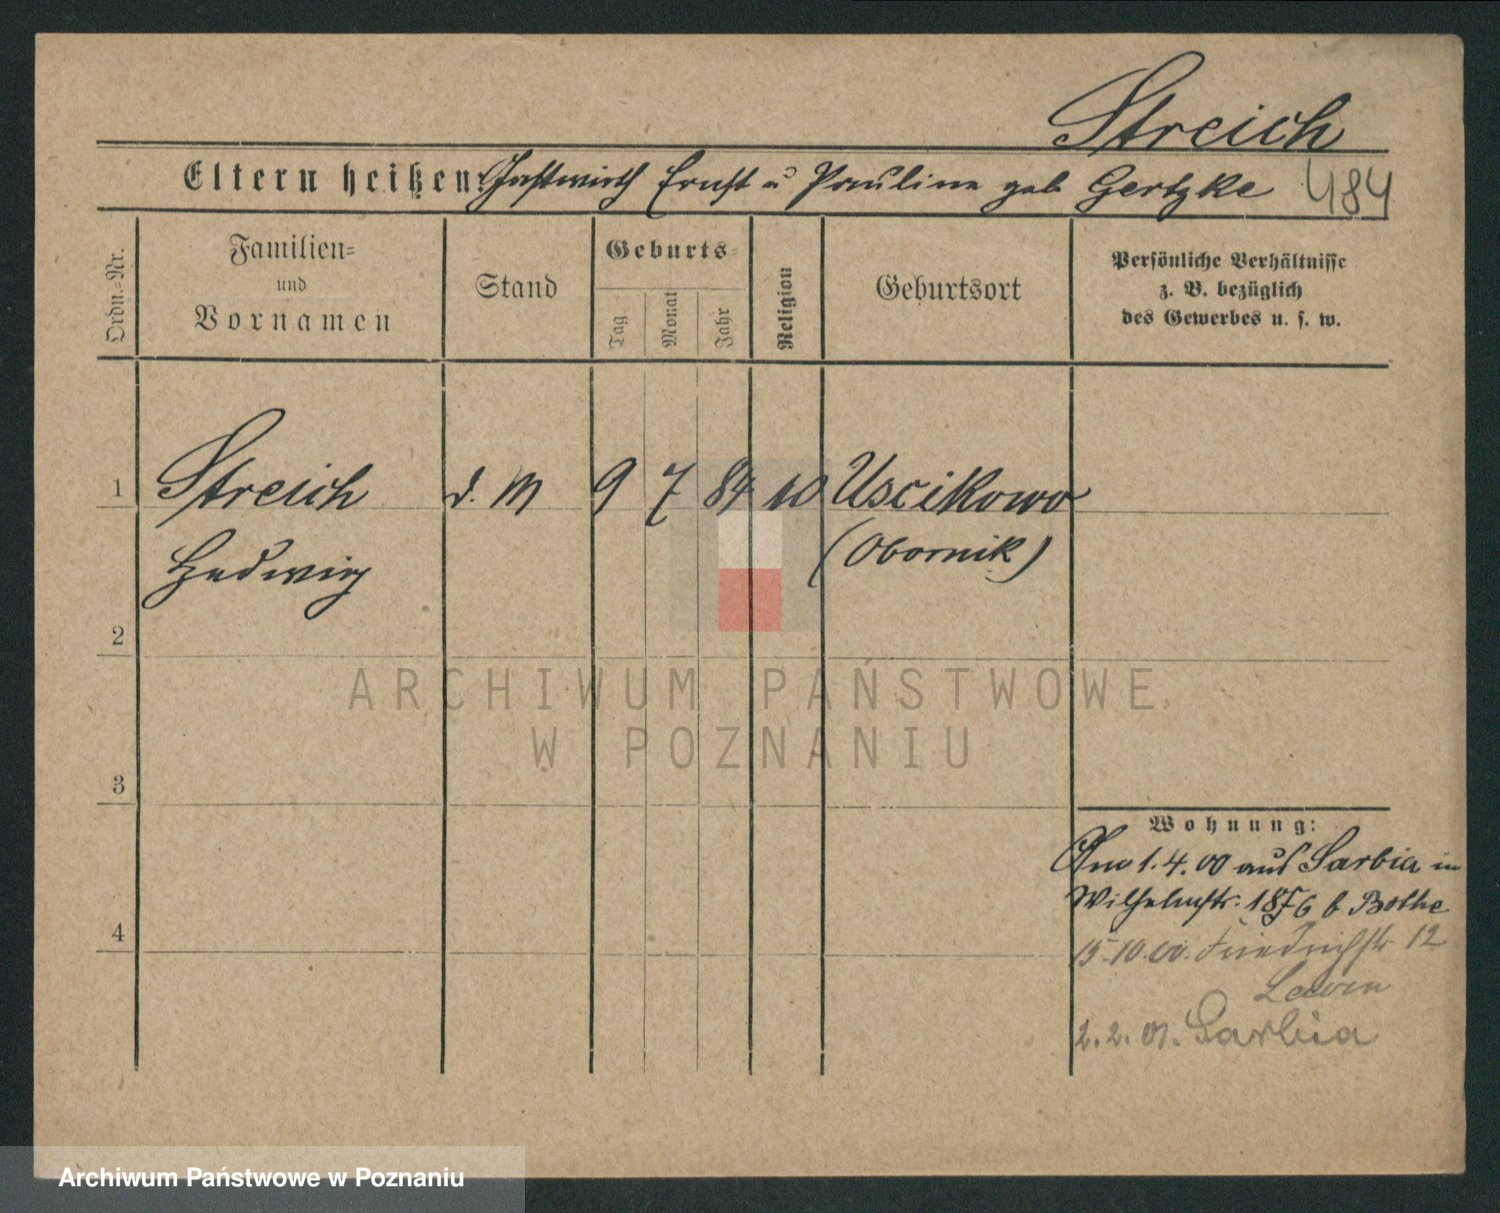 Streich
Eltern heißen Gastwirth Ernst u Pauline geb Gertzke 484
Ordn.-Nr.
Familien-
und
Vornamen
Stand
Geburts-
Tag
Monat
Jahr
Religion
Geburtsort
Persönliche Verhältnisse
z. B. bezüglich
des Gewerbes u. s. w.
1 Streich d. M 9 7 84 Uscikowo
Hedwig (Obornik)
2
3
4
ARCHIWUM PAŃSTWOWE
W POZNANIU
Wohnung:
1.4.00 aus Sarbia in
Wilhelmstr. 6 b Bothe
15.10.00. Friedrichstr 12
2.2.01. Sarbia
Archiwum Państwowe w Poznaniu